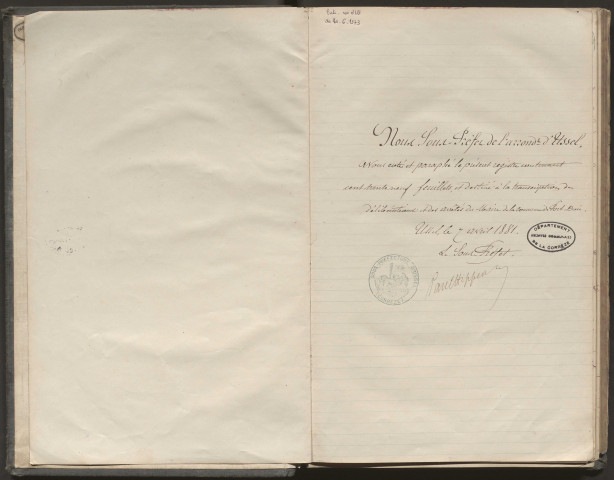 Nous Sous-Préfet de l'arrondt d'Ussel,
Avons coté et paraphé le présent registre contenant
cent trente neuf feuillets et destiné à la transcription des
délibérations et des arrêtés du Maire de la commune de
Ussel le 7 avril 1881.
Le Sous-Préfet.
DÉPARTEMENT
DE LA CORRÈZE